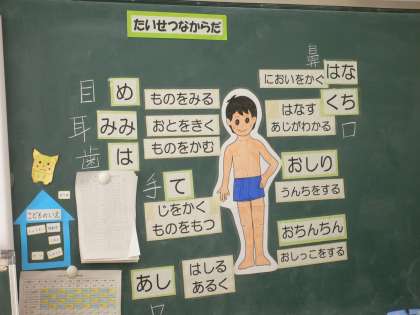 たいせつなからだ
目
め
ものをみる
耳
みみ
おとをきく
歯
は
ものをかむ
手
て
じをかく
ものをもつ
あし
はしる
あるく
鼻
はな
においをかぐ
くち
はなす
あじがわかる
口
おしり
うんちをする
おちんちん
おしっこをする
こどものいえ